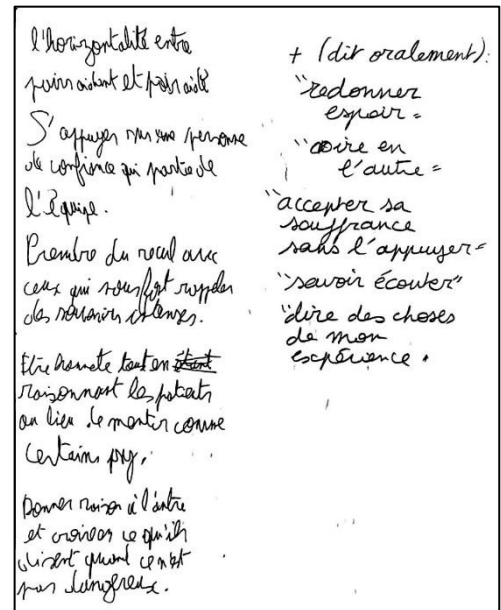 l'horizontalité entre
pair aidant et pair aidé
S'appuyer sur une personne
de confiance qui partie de
l'équipe.
Prendre du recul avec
ceux qui nous font rappeler
des souvenirs intenses.
Etre honnete tout en étant
raisonnant les patients
au lieu de mentir comme
certains psy.
Donner raison à l'autre
et croire ce qu'ils
disent quand ce n'est
pas dangereux.
+ (dit oralement):
"redonner
espoir"
"croire en
l'autre"
"accepter sa
souffrance
sans l'appuyer"
"savoir écouter"
"dire des choses
de mon
expérience"